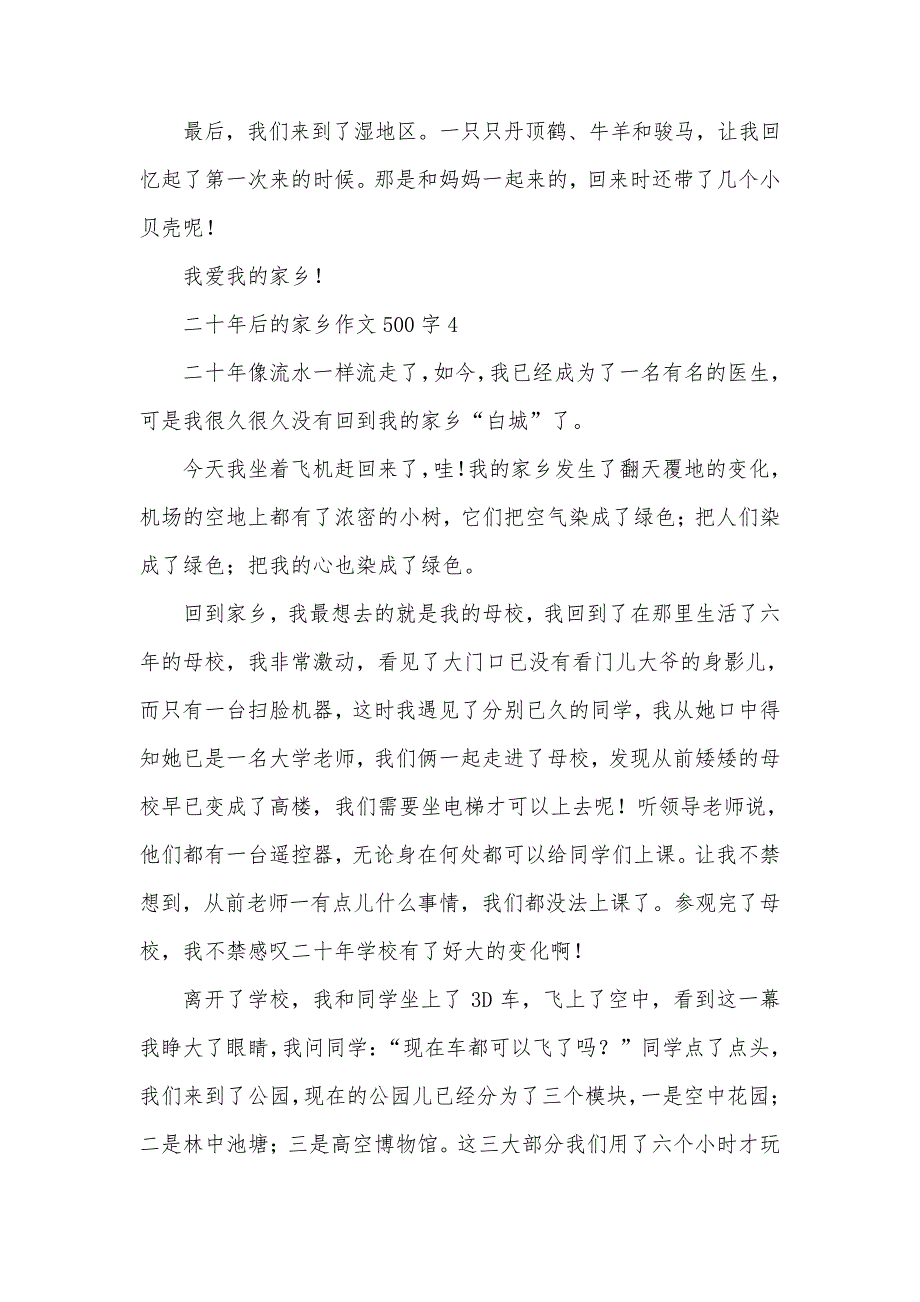 最后，我们来到了湿地区。一只只丹顶鹤、牛羊和骏马，让我回
忆起了第一次来的时候。那是和妈妈一起来的，回来时还带了几个小
贝壳呢！
我爱我的家乡！
二十年后的家乡作文 500 字 4
二十年像流水一样流走了，如今，我已经成为了一名有名的医生，
可是我很久很久没有回到我的家乡“白城”了。
今天我坐着飞机赶回来了，哇！我的家乡发生了翻天覆地的变化，
机场的空地上都有了浓密的小树，它们把空气染成了绿色；把人们染
成了绿色；把我的心也染成了绿色。
回到家乡，我最想去的就是我的母校，我回到了在那里生活了六
年的母校，我非常激动，看见了大门口已没有看门儿大爷的身影儿，
而只有一台扫脸机器，这时我遇见了分别已久的同学，我从她口中得
知她已是一名大学老师，我们俩一起走进了母校，发现从前矮矮的母
校早已变成了高楼，我们需要坐电梯才可以上去呢！听领导老师说，
他们都有一台遥控器，无论身在何处都可以给同学们上课。让我不禁
想到，从前老师一有点儿什么事情，我们都没法上课了。参观完了母
校，我不禁感叹二十年学校有了好大的变化啊！
离开了学校，我和同学坐上了 3D 车，飞上了空中，看到这一幕
我睁大了眼睛，我问同学：“现在车都可以飞了吗？”同学点了点头，
我们来到了公园，现在的公园儿已经分为了三个模块，一是空中花园；
二是林中池塘；三是高空博物馆。这三大部分我们用了六个小时才玩